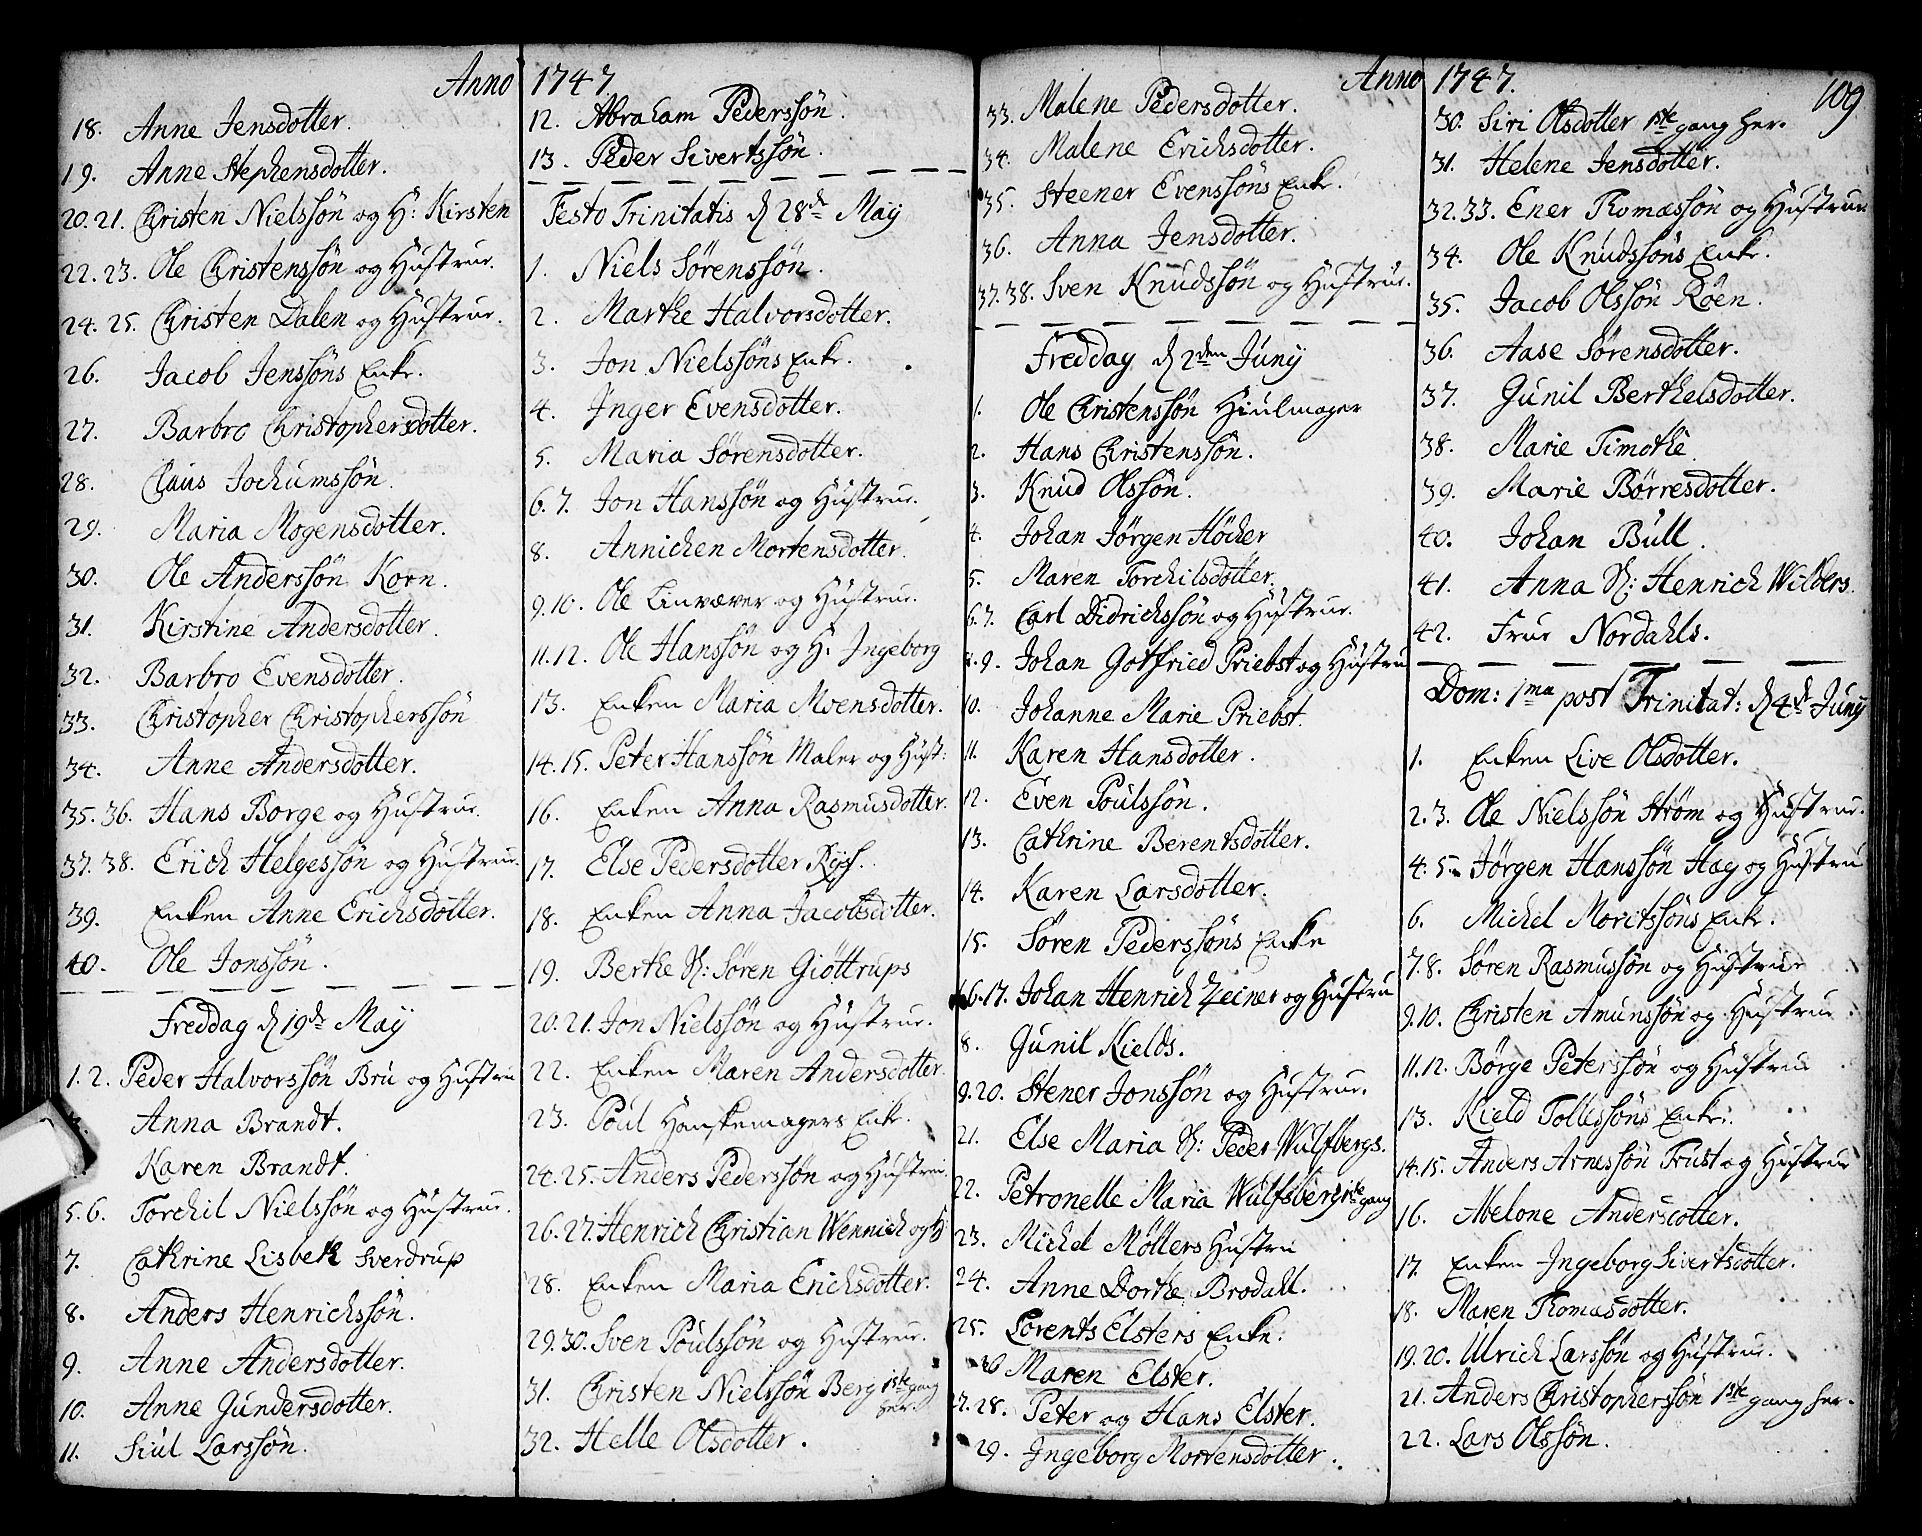 Anno 1747
18. Anne Jensdotter.
19. Anne Stephensdotter.
20. 21. Christen Nielssön og H: Kirsten
22. 23. Ole Christenssön og Hustrue.
24. 25. Christen Dalen og Hustrue.
26. Jacob Jenssöns Enke.
27. Barbro Christophersdotter.
28. Claus Jochumssön.
29. Maria Mogensdotter.
30. Ole Anderssön Korn.
31. Kirstine Andersdotter.
32. Barbro Evensdotter.
33. Christopher Christopherssön
34. Anne Andersdotter.
35. 36. Hans Borge og Hustrue.
37. 38. Erich Helgessön og Hustrue.
39. Enken Anne Erichsdotter.
40. Ole Jonssön.
Freddag d 19de Maij
1. 2. Peder Halvorssön Bru og Hustru
Anna Brandt.
Karen Brandt.
5. 6. Torchil Nielssön og Hustrue.
7. Cathrine Lisbeth Sverdrup
8. Anders Henrichssön.
9. Anne Andersdotter.
10. Anne Gundersdotter.
11. Siul Larssön.
12. Abraham Pederssön.
13. Peder Sivertssön.
Festo Trinitatis d 28de Maij
1. Niels Sörenssön.
2. Marthe Halvorsdotter.
3. Jon Nielssöns Enke.
4. Inger Evensdotter.
5. Maria Sörensdotter.
6. 7. Jon Hanssön og Hustrue.
8. Annichen Mortensdotter.
9. 10. Ole Linvæver og Hustrue.
11. 12. Ole Hanssön og H. Ingeborg
13. Enken Maria Moensdotter.
14. 15. Peter Hanssön Maler og Hust:
16. Enken Anna Rasmusdotter.
17. Else Pedersdotter Rÿss.
18. Enken Anna Jacobsdotter.
19. Berthe S: Sören Giöttrups
20. 21. Jon Nielssön og Hustrue.
22. Enken Maren Andersdotter.
23. Poul Handskemagers Enke.
24. 25. Anders Pederssön og Hustrue.
26. 27. Henrich Christian Wennich og H
28. Enken Maria Erichsdotter.
29. 30. Sven Poulssön og Hustrue.
31. Christen Nielssön Berg 1ste gang her.
32. Helle Olsdotter.
Anno 1747. 109
33. Malene Pedersdotter.
34. Malene Erichsdotter.
35. Steener Evenssöns Enke.
36. Anna Jensdotter.
37. 38. Sven Knudssön og Hustrue.
Freddag d 2den Junij
1. Ole Christenssön Hiulmager
2. Hans Christenssön.
3. Knud Olssön.
4. Johan Jörgen Höcker
5. Maren Torchilsdotter.
6. 7. Carl Didrichssön og Hustrue.
8. 9. Johan Gotfried Priebst og Hustru
10. Johanne Marie Priebst.
11. Karen Hansdotter.
12. Even Poulssön.
13. Cathrine Berentsdotter.
14. Karen Larsdotter.
15. Sören Pederssöns Enke
16. 17. Johan Henrich Zeiner og Hustru
8. Gunil Kields.
9. 20. Stener Jonssön og Hustrue.
21. Else Maria S: Peder Wulfbergs.
22. Petronelle Maria Wulfsberg 1ste gang
23. Michel Möllers Hustru
24. Anne Dorthe Brodall.
25. Lorents Elsters Enke:
26 Maren Elster.
27. 28. Peter og Hans Elster.
29. Ingeborg Mortensdotter.
30. Siri Olsdotter 1ste gang her.
31. Helene Jensdotter.
32. 33. Ener Thomassön og Hustrue
34. Ole Knudssöns Enke.
35. Jacob Olssön Röen.
36. Aase Sörensdotter.
37. Gunil Berthelsdotter.
38. Marie Timothe
39. Marie Börresdotter.
40. Johan Bull.
41. Anna S: Henrich Wilders.
42. Frue Nordahls.
Dom: 1ma post Trinitat: d 4de Junij
1. Enken Live Olsdotter.
2. 3. Ole Nielssön Ström og Hustrue.
4. 5. Jörgen Hanssön Hag og Hustru
6. Michel Moritssöns Enke.
7. 8. Sören Rasmussön og Hustrue
9. 10. Christen Amunssön og Hustrue
11. 12. Börge Peterssön og Hustrue
13. Kield Tollessöns Enke.
14. 15. Anders Arnessön Trust og Hustrue
16. Abelone Andersdotter.
17. Enken Ingeborg Sivertsdotter.
18. Maren Thomasdotter.
19. 20. Ulrich Larssön og Hustrue.
21. Anders Christopherssön 1ste gang her.
22. Lars Olssön.